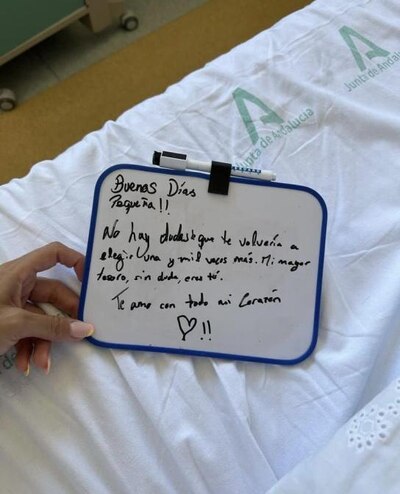 Junta de Andalucía
Junta de Andalucia
Buenos Días
Pequeña!!
No hay dudas que te volvería a
elegir una y mil veces más. Mi mayor
tesoro, sin duda, eres tú.
Te amo con todo mi corazón
!!